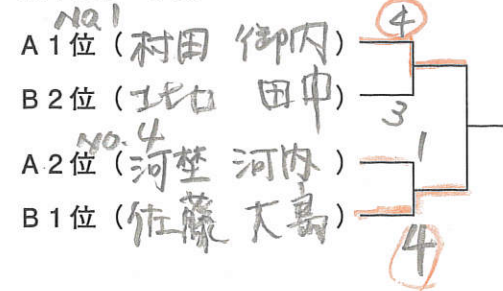 No.1
A1位(村田 御内) 4
B2位(北口 田中) 3
No.4
A2位(河埜 河内) 1
B1位(佐藤 大島) 4